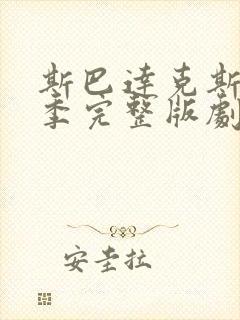 斯巴達克斯
季完整版劇
安圭拉